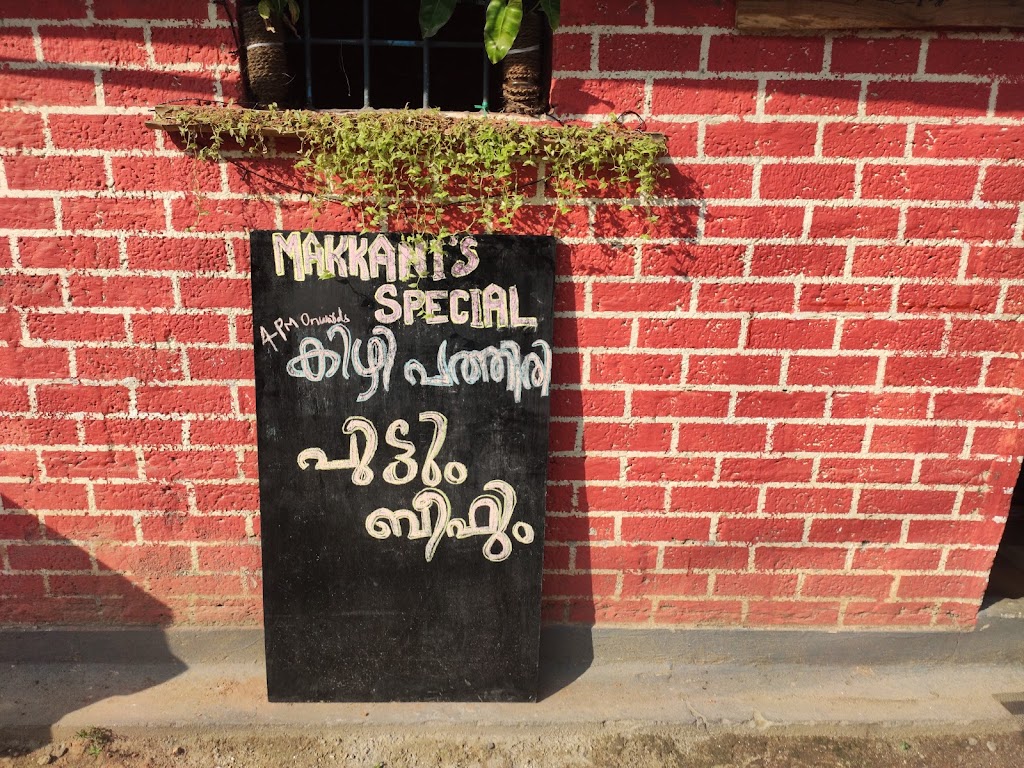 MAKKANI'S
SPECIAL
4PM Onwards
കിഴി പത്തിരി
പുട്ടും
ബീഫും